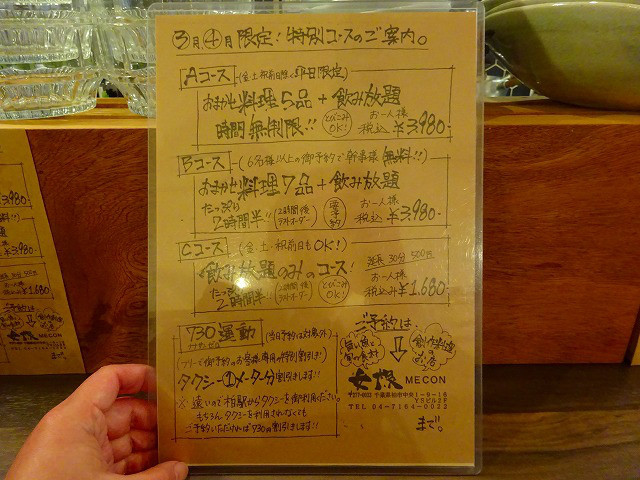 3月④月 限定!特別コースのご案内。
Aコース (金、土、祝前日除く平日限定)
おまかせ料理5品+飲み放題
時間 無制限!! とびこみOK! お一人様 税込 ¥3,980-
Bコース (6名様以上の御予約で幹事様 無料!!)
おまかせ料理7品+飲み放題
たっぷり 2時間半!! (2時間後ラストオーダー) 要予約 お一人様 税込 ¥3,980-
Cコース (金、土、祝前日もOK!)
飲み放題のみのコース! 延長 30分 500円
たっぷり 2時間半 (2時間後ラストオーダー) とびこみOK! お一人様 税込み ¥1,680-
730運動 (当日予約は対象外)
タクシー①メーター分割引きします!!
※遠いので柏駅からタクシーを御利用ください。
もちろん タクシーを利用されなくても
ご予約いただければ730円割引きします!!
ご予約は
旨い魚と旬の食材
MECON
〒277-0023 千葉県柏市中央1-9-16
YSビル2F
TEL 04-7164-0023
まで。
3,980-
3,980-
延長 30分 500円
お一人様
¥1,680-
ご予約は
MECON
まで。